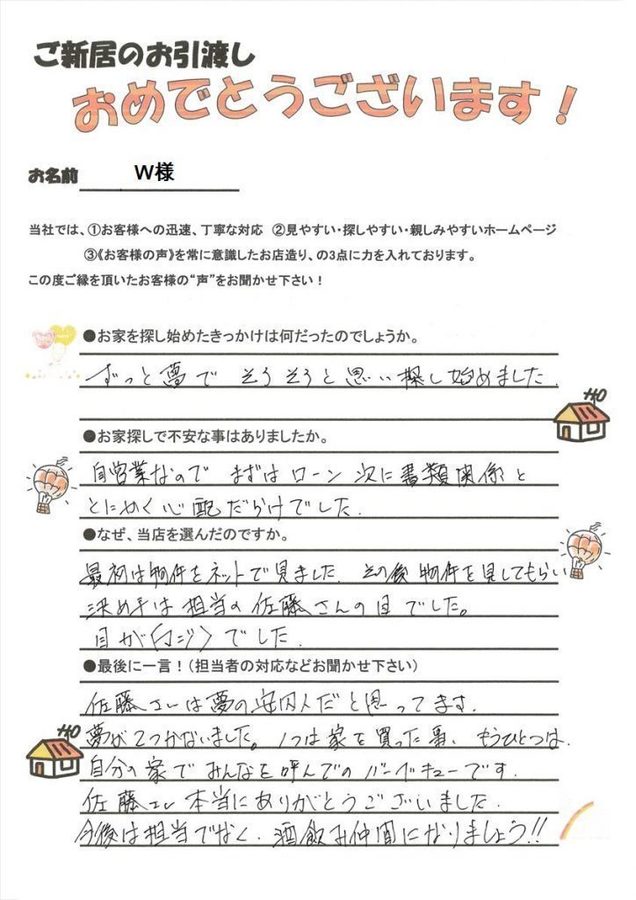 ご新居のお引渡し
おめでとうございます!
お名前 W様
当社では、①お客様への迅速、丁寧な対応 ②見やすい・探しやすい・親しみやすいホームページ
③《お客様の声》を常に意識したお店造り、の3点に力を入れております。
この度ご縁を頂いたお客様の“声”をお聞かせ下さい!
●お家を探し始めたきっかけは何だったのでしょうか。
ずっと夢で そろそろと思い探し始めました.
●お家探しで不安な事はありましたか。
自営業なので まずは ローン 次に書類関係と
とにかく心配だらけでした.
●なぜ、当店を選んだのですか。
最初は物件をネットで見ました. その後物件を見してもらい
決め手は担当の佐藤さんの目でした。
目が〈マジ〉でした.
●最後に一言!(担当者の対応などお聞かせ下さい)
佐藤さんは夢の案内人だと思ってます.
夢が2つかないました。1つは家を買った事、もうひとつは.
自分の家でみんなを呼んでのバーベキューです.
佐藤さん本当にありがとうございました.
今後は担当でなく.酒飲み仲間になりましょう!!
HO
HO